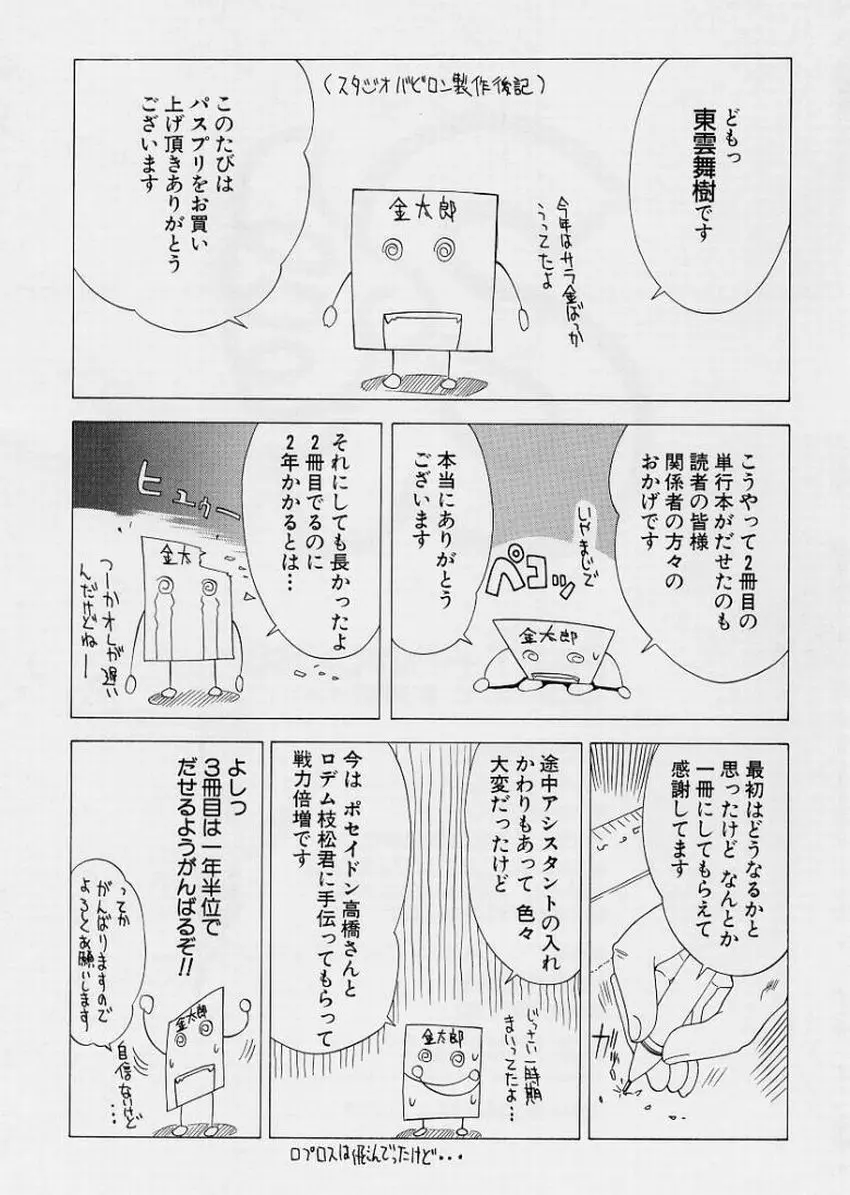 （スタジオバビロン製作後記）
どもっ
東雲舞樹です
このたびは
パスプリをお買い
上げ頂きありがとう
ございます
金太郎
今年はサラ金ばっか
うってたよ
こうやって２冊目の
単行本がだせたのも
読者の皆様
関係者の方々の
おかげです
いやまじで
ペコッ
本当にありがとう
ございます
金太郎
それにしても長かったよ
２冊目でるのに
２年かかるとは…
ヒュゥー
金太
つーかオレが遅い
んだけどねー
最初はどうなるかと
思ったけど なんとか
一冊にしてもらえて
感謝してます
ガ
途中アシスタントの入れ
かわりもあって 色々
大変だったけど
じっさい一時期
まいってたよ…
今は ポセイドン高橋さんと
ロデム枝松君に手伝ってもらって
戦力倍増です
金太郎
よしっ
３冊目は一年半位で
だせるようがんばるぞ!!
ってか
がんばりますので
よろしくお願いします
金太郎
自信ないけど
…
ロプロスは飛んでったけど・・・